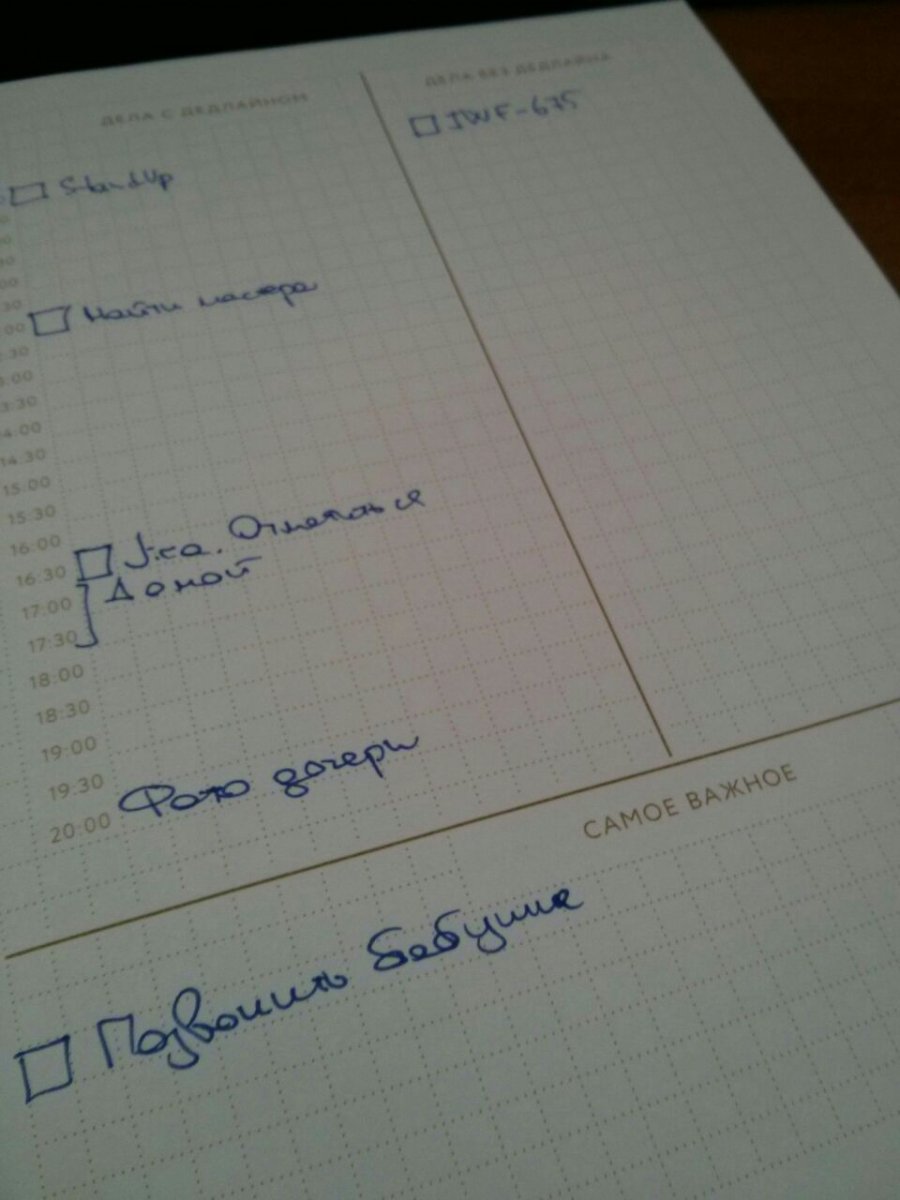 ДЕЛА С ДЕДЛАЙНОМ
ДЕЛА БЕЗ ДЕДЛАЙНА
StandUp
JWF-675
30
:00 Найти мастера
:30
3:00
3:30
14:00
14:30
15:00
15:30
16:00
16:30 Jira. Отметаться
17:00 Домой
17:30
18:00
18:30
19:00
19:30
20:00 Фото дочери
САМОЕ ВАЖНОЕ
Позвонить бабушке